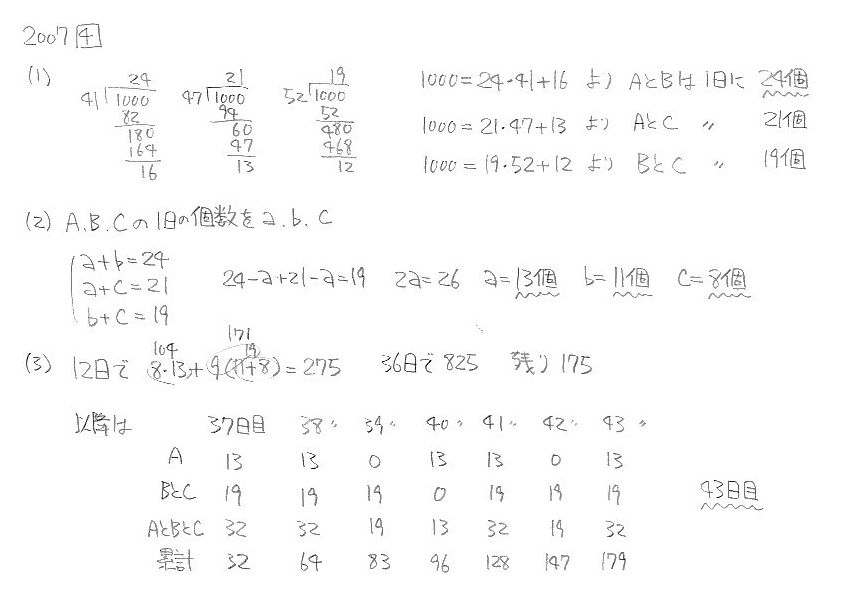 2007 4
(1)
24
41)1000
82
180
164
16
21
47)1000
94
60
47
13
19
52)1000
52
480
468
12
1000=24・41+16 より AとBは1日に 24個
1000=21・47+13 より AとC 〃 21個
1000=19・52+12 より BとC 〃 19個
(2) A.B.Cの1日の個数をa.b.c
a+b=24
a+c=21
b+c=19
24-a+21-a=19 2a=26 a=13個 b=11個 c=8個
104 171 19
(3) 12日で 8・13+9(11+8)=275 36日で825 残り175
以降は 37日目 38〃 39〃 40〃 41〃 42〃 43〃
A 13 13 0 13 13 0 13
BとC 19 19 19 0 19 19 19
43日目
AとBとC 32 32 19 13 32 19 32
累計 32 64 83 96 128 147 179